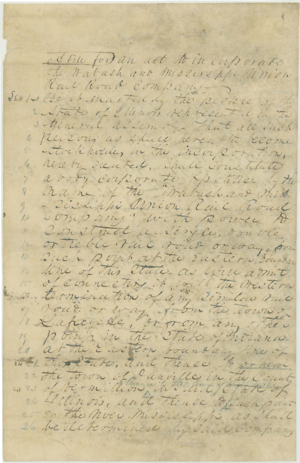 A Bill for an act to incorporate
the Wabash and Mississippi Union
Rail Road Company
Sec 1 Be it enacted by the people of the
State of Illinois represented in the
General Assembly That all such
persons as shall become
Stockholders in the Corporation
hereby created, shall constitute
a body corporate by the
name of the Wabash and Mis-
sissippi Union Rail Road
Company with power to
construct a single, double
or treble rail road or way from
such point on the eastern boundary
line of this State as will admit
of connecting it with the western
termination of any similar rail
road or way from the town of
Lafayette, or from any other
point in the State of Indiana
at the Eastern boundary line of
this State, and thence
the town of Danville in the County
of Vermilion, and State of
Illinois, and thence to such point
on the River Mississippi as shall
be determined by said Company